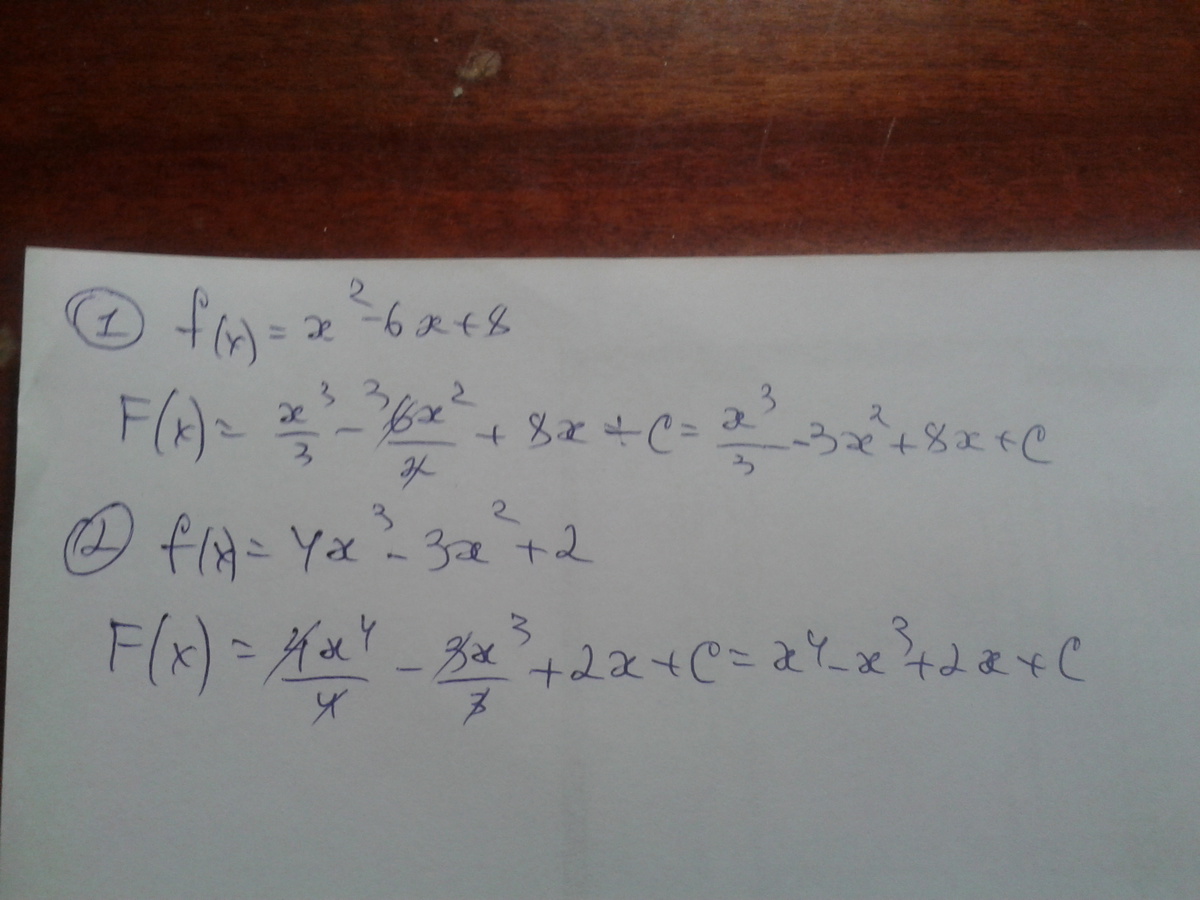 ① f(x) = x² - 6x + 8
F(x) = x³/3 - ³6x²/2 + 8x + C = x³/3 - 3x² + 8x + C
② f(x) = 4x³ - 3x² + 2
F(x) = 4x⁴/4 - 3x³/3 + 2x + C = x⁴ - x³ + 2x + C